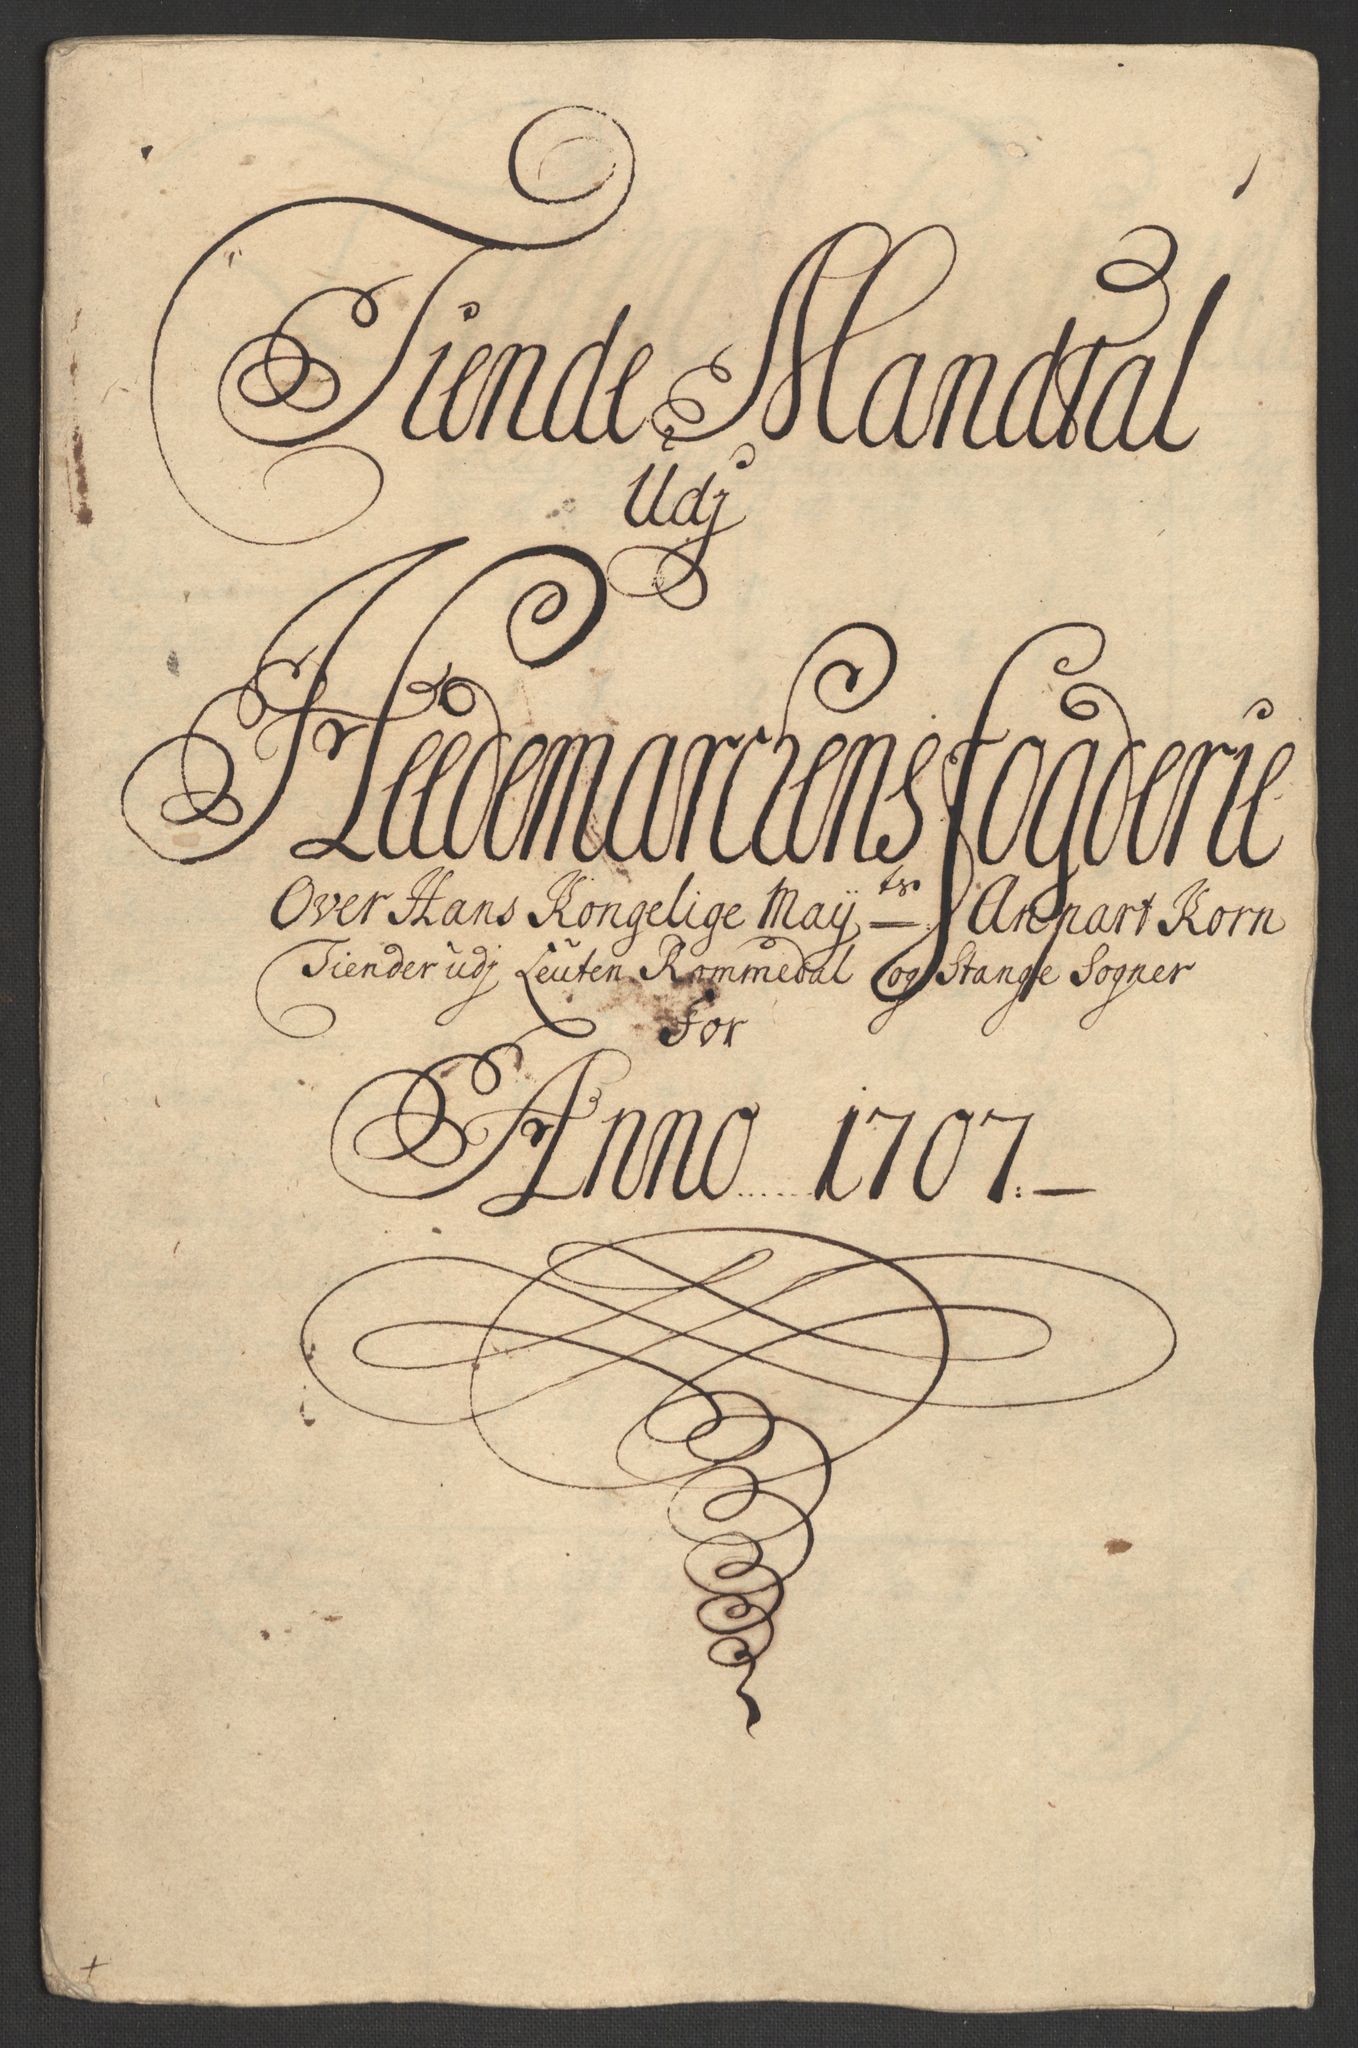 Tiende Mandtal
Udj
Heedemarckens fogderie
Over Hans Kongelige Maÿ:ts Anpart Korn
Tiender udj Leuten Rommedal og Stange Sogner
For
Anno 1707: